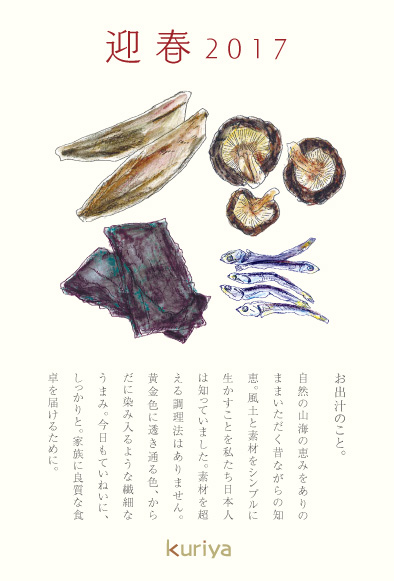 迎春2017
お出汁のこと。
自然の山海の恵みをありの
ままいただく昔ながらの知
恵。風土と素材をシンプルに
生かすことを私たち日本人
は知っていました。素材を超
える調理法はありません。
黄金色に透き通る色、から
だに染み入るような繊細な
うまみ。今日もていねいに、
しっかりと。家族に良質な食
卓を届けるために。
kuriya